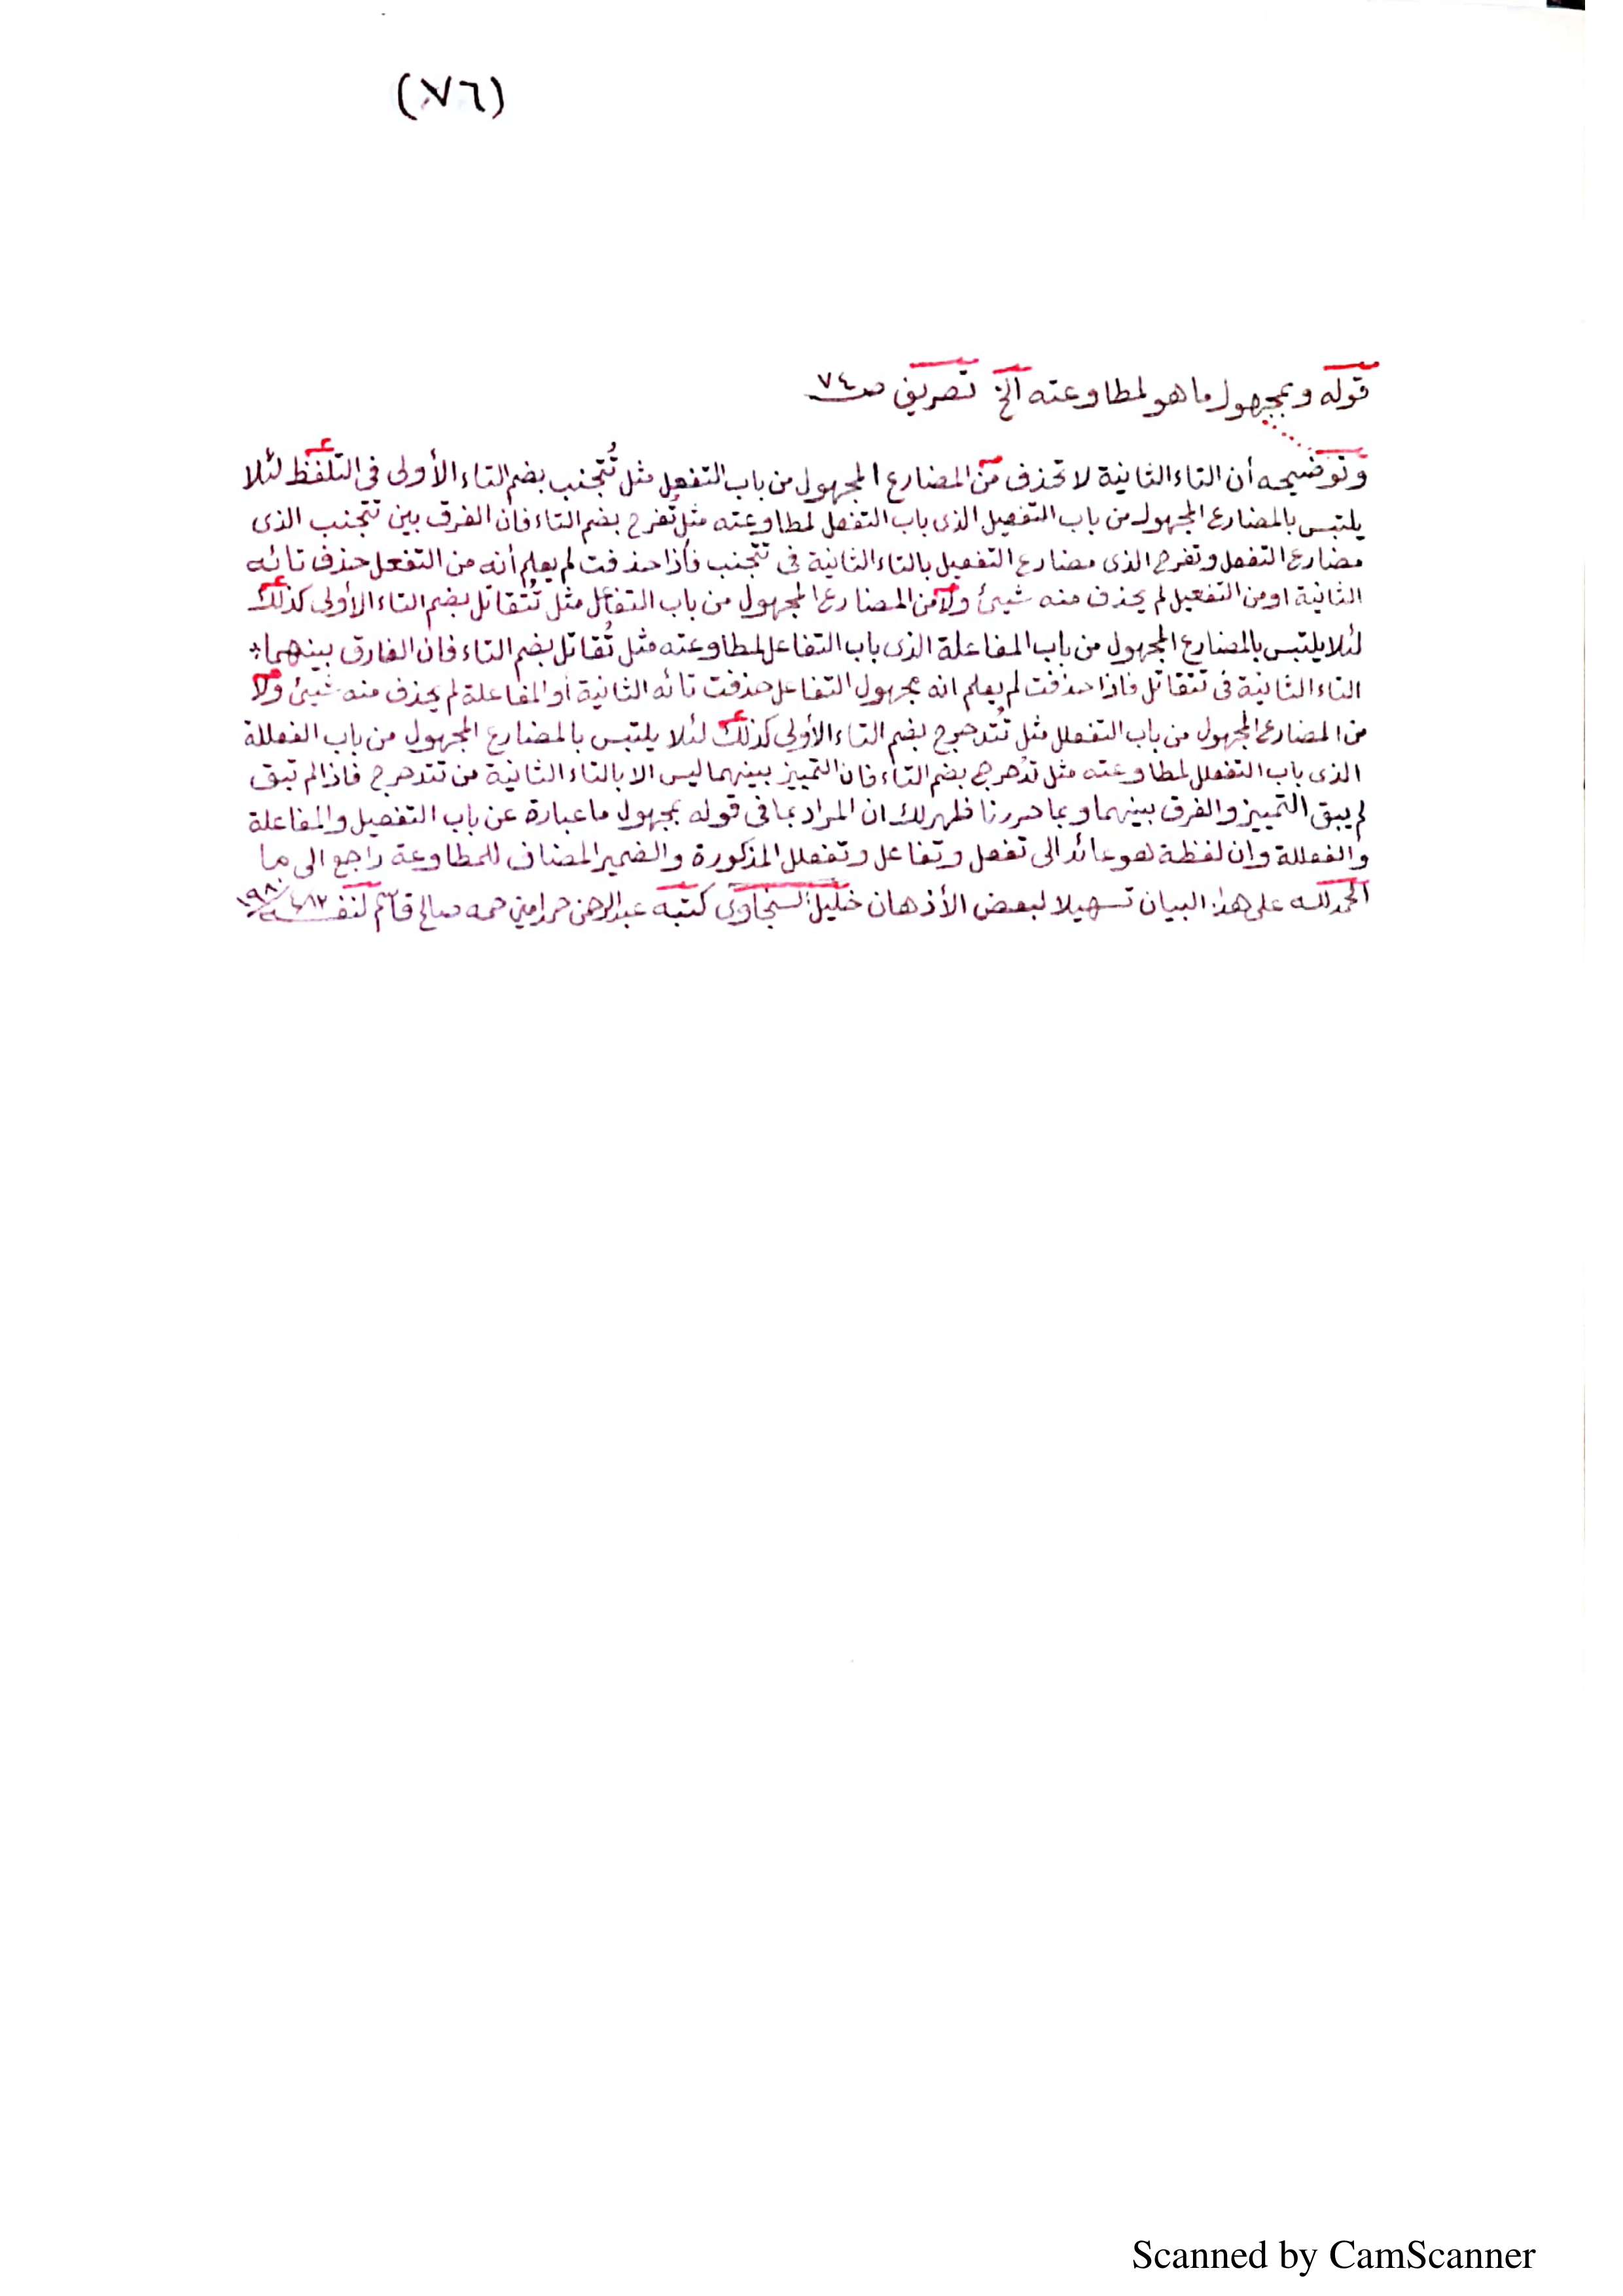 (٧٦)
قوله وبمجهول ما هو لمطاوعته الخ تصريف ص ٧٤
وتوضيحه أن التاء الثانية لا تحذف من المضارع المجهول من باب التفعل مثل تُتجنب بضم التاء الأولى فى التلفظ لئلا
يلتبس بالمضارع المجهول من باب التفعيل الذى باب التفعل لمطاوعته مثل تُفرح بضم التاء فان الفرق بين تتجنب الذى
مضارع التفعل وتفرح الذى مضارع التفعيل بالتاء الثانية فى تتجنب فأذا حذفت لم يعلم أنه من التفعل حذف تائه
الثانية او من التفعيل لم يحذف منه شيئ ولا من المضارع المجهول من باب التفاعل مثل تُتقاتل بضم التاء الأولى كذلك
لئلا يلتبس بالمضارع المجهول من باب المفاعلة الذى باب التفاعل لمطاوعته مثل تُقاتل بضم التاء فان الفارق بينهما*
التاء الثانية فى تتقاتل فاذا حذفت لم يعلم انه مجهول التفاعل حذفت تائه الثانية أو المفاعلة لم يحذف منه شيئ ولا
من المضارع المجهول من باب التفعلل مثل تُتدحرج بضم التاء الأولى كذلك لئلا يلتبس بالمضارع المجهول من باب الفعللة
الذى باب التفعلل لمطاوعته مثل تدحرج بضم التاء فان التمييز بينهما ليس الا بالتاء الثانية من تتدحرج فاذا لم تبق
لم يبق التمييز والفرق بينهما وبما حررنا ظهر لك ان المراد بما فى قوله بمجهول ما عبارة عن باب التفعيل والمفاعلة
والفعللة وان لفظة هو عائد الى تفعل وتفاعل وتفعلل المذكورة والضمير المضاف للمطاوعة راجع الى ما
الحمد لله على هذا البيان تسهيلا لبعض الأذهان خليل السنجاوى كتبه عبدالرحمن حمه صالح قاسم لنفسه
Scanned by CamScanner